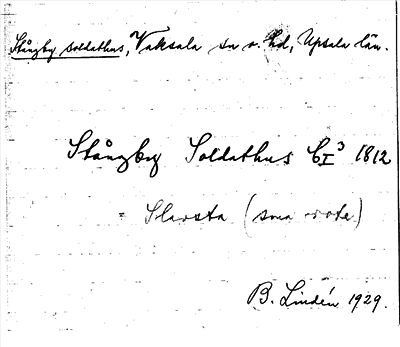 Stångby soldathus, Vaksala sn o. hd, Upsala län.
Stångby Soldathus C I 3 1812
= Slavsta (sma rote)
B. Lindén 1929.